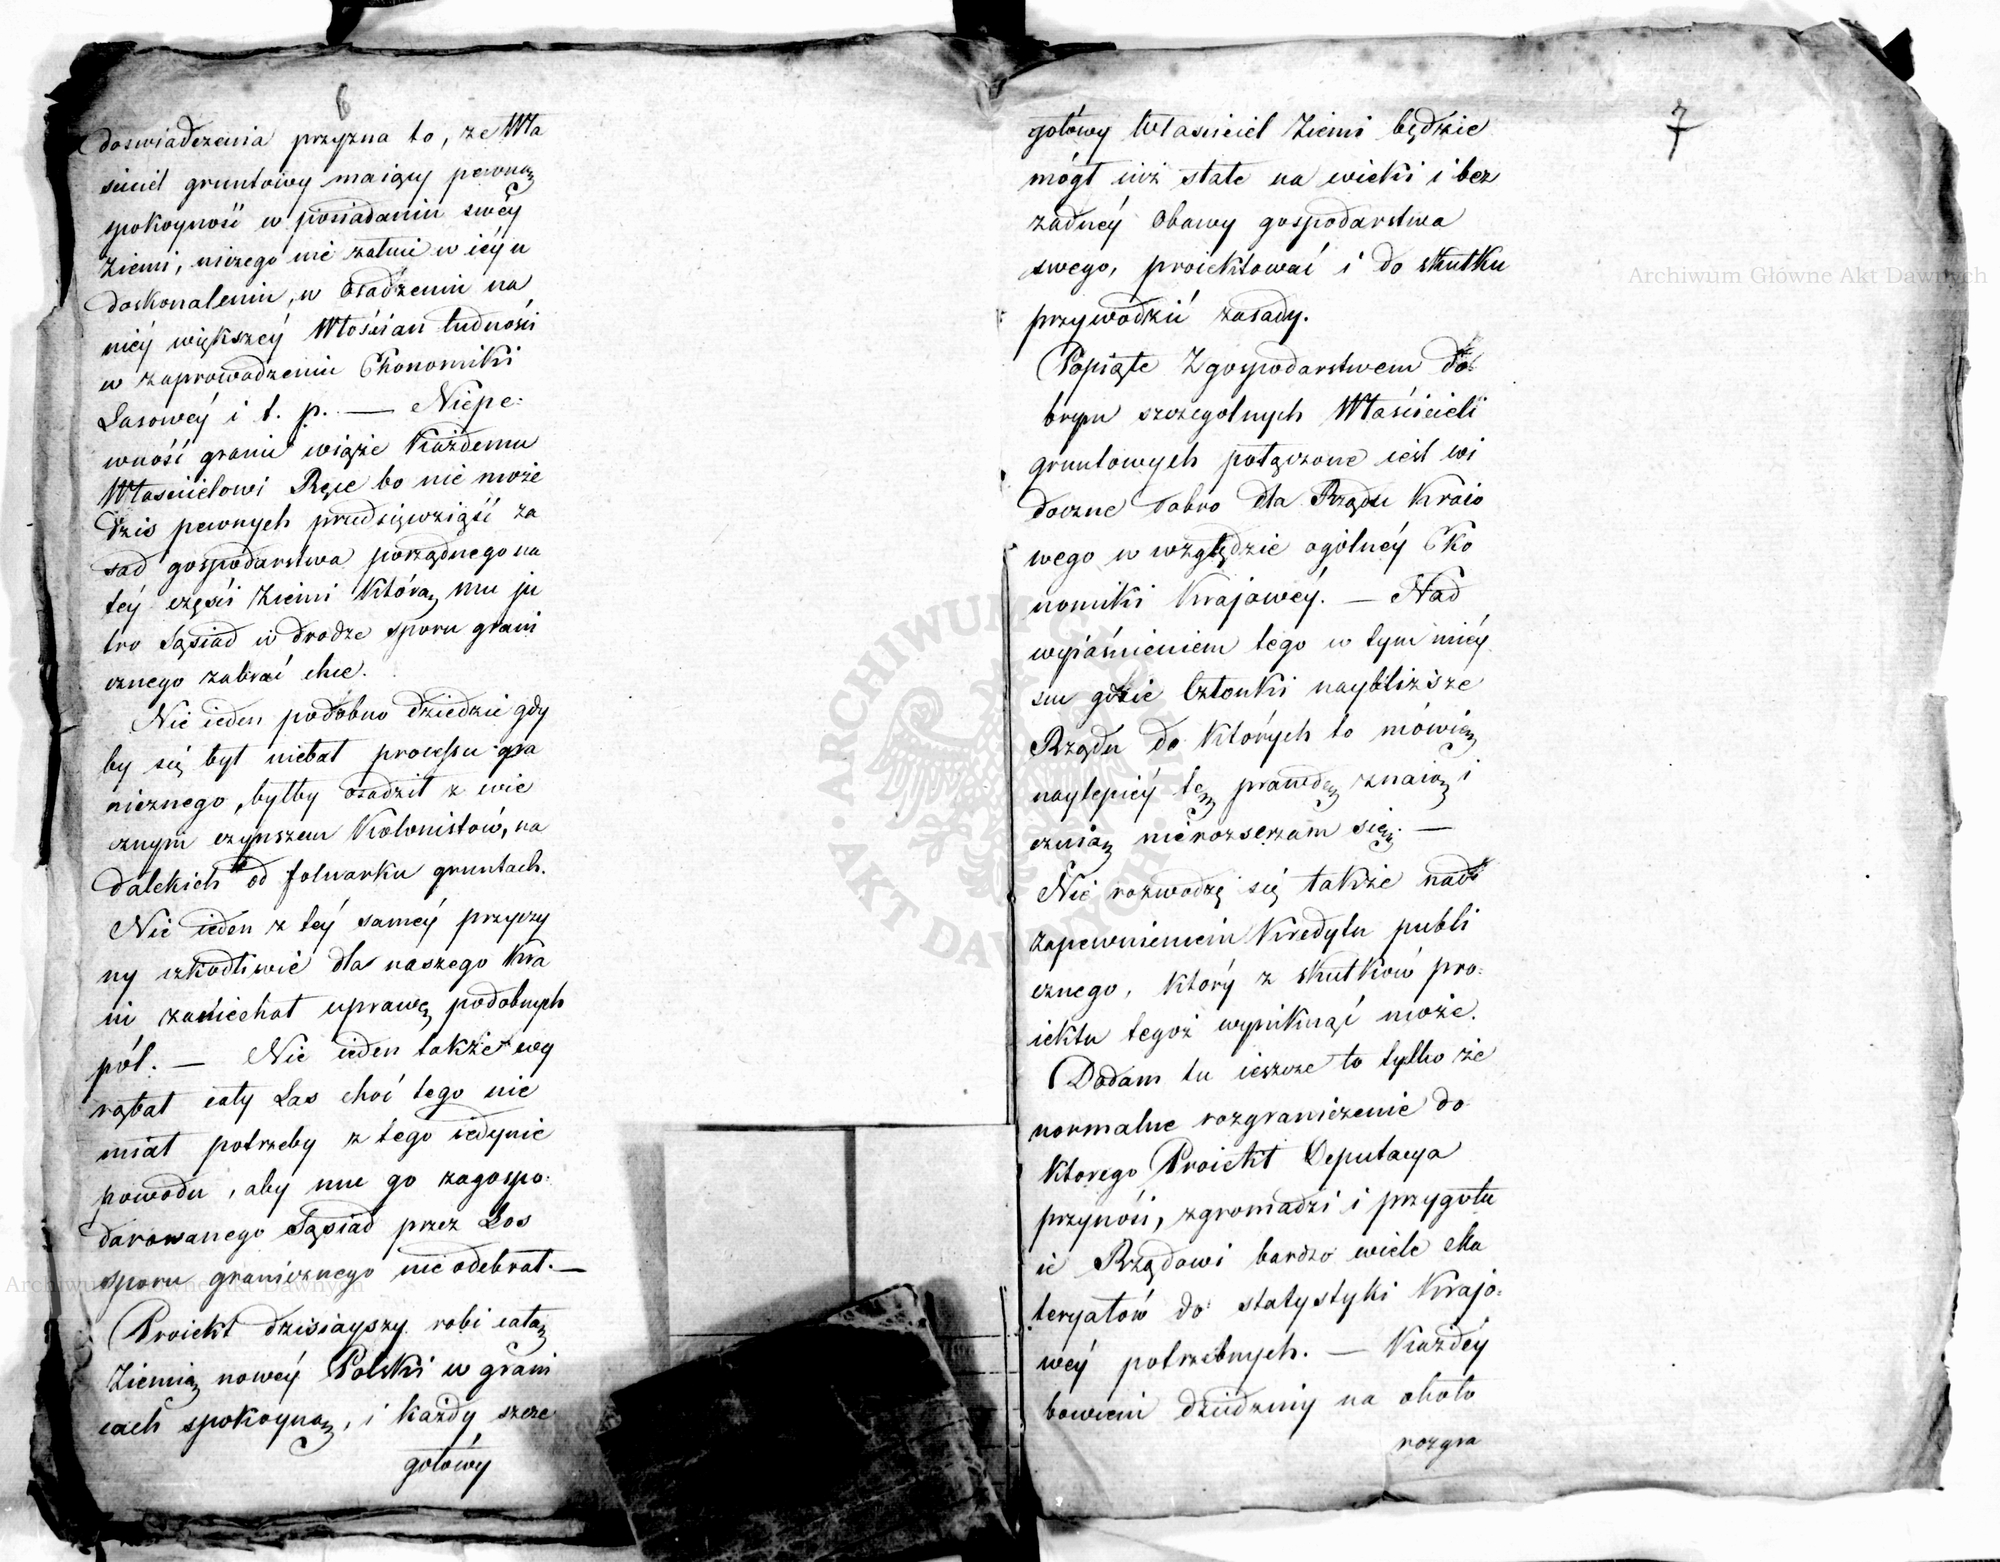 6
doswiadczenia przyzna to, że Wła
ściciel gruntowy maiący pewną
spokoyność w posiadaniu swéy
Ziemi, niczego nie załuie w iéy u
doskonaleniu, w osadzeniu na
niéy większéy Włościan ludności
w zaprowadzeniu Ekonomiki
Lasowéy i t. p. — Niepe-
wność granic wiąże Każdemu
Właścicielowi Ręce bo nie może
dzis pewnych przedsięwziąść za
sad gospodarstwa porządnego na
téy części Ziemi Którą mu ju
tro Sąsiad w drodze sporu grani
cznego zabrać chce.
Nie ieden podobno dziedzic gdy
by się był niebał processu gra
nicznego, byłby osadził z wie
cznym czynszem Kolonistów, na
dalekich od folwarku gruntach.
Nie ieden z téy saméy przyczy
ny szkodliwie dla naszego Kra
iu zaniechał uprawę podobnych
pól. — Nie ieden także wy
rąbał cały Las choć tego nie
miał potrzeby z tego iedynie
powodu, aby mu go zagospo-
darowanego Sąsiad przez Los
sporu granicznego nie odebrał. —
Proiekt dzisiayszy robi całą
Ziemią nowéy Polski w grani
cach spokoyną, i każdy szcze
gołówy
7
gołówy Właściciel Ziemi będzie
mógł iuż stale na wieki i bez
żadnéy obawy gospodarstwa
swego, proiektować i do skutku
przywodzić zasady.
Popiąte Z gospodarstwem do
brym szczegolnych Właścicieli
gruntowych połączone iest wi
doczne dobro dla Rządu Kraio
wego w względzie ogólnéy Eko
nomiki Krajowéy. — Nad
wyiaśnieniem tego w tym miéy
scu gdzie Członki naybliższe
Rządu do których to mówię
naylepiéy tę prawdę znaią i
czuią nierozserzam się. —
Nie rozwodzę się także nad
zapewnieniem Kredytu publi
cznego, Który z skutków pro-
iektu tegoż wyniknąć może.
Dodam tu ieszcze to tylko że
normalne rozgraniczenie do
Ktorego Proiekt Deputacya
przynosi, zgromadzi i przygotu
ie Rządowi bardzo wiele Ma
teryałów do statystyki Krajo-
wéy potrzebnych. — Każdéy
bowiem dziedziny na około
rozgra
Archiwum Główne Akt Dawnych
Archiwum Główne Akt Dawnych
ARCHIWUM GŁÓWNE AKT DAWNYCH